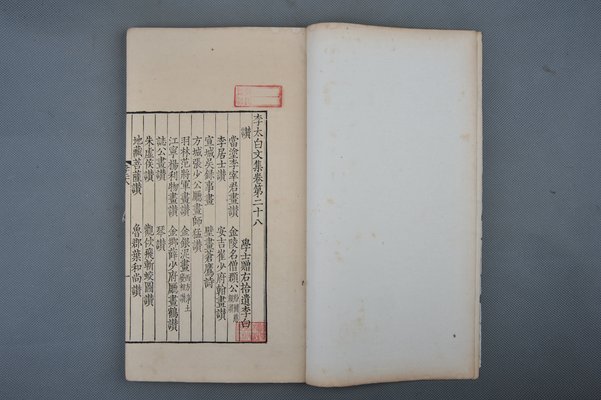 李太白文集卷第二十八
學士贈右拾遺李白
讚
當塗李宰君畫讚 金陵名僧頵公粉圖慈親讚
李居士讚 安吉崔少府翰畫讚
宣城吳錄事畫讚 壁畫蒼鷹讚
方城張少公廳畫師猛讚
羽林范將軍畫讚 金銀泥畫西方淨土變相讚
江寧楊利物畫讚 金鄉薛少府廳畫鶴讚
誌公畫讚 琴讚
朱虛侯讚 觀佽飛斬蛟圖讚
地藏菩薩讚 魯郡葉和尚讚